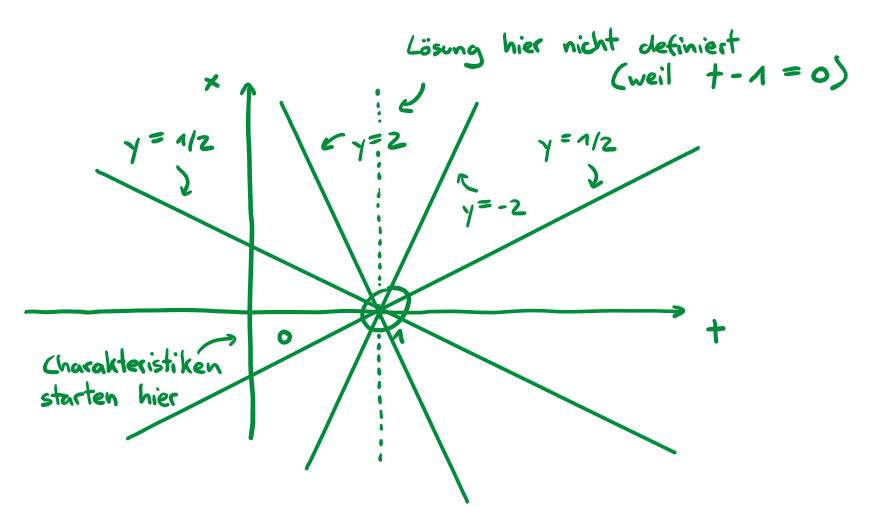 Lösung hier nicht definiert
(weil t-1=0)
x
y=1/2
y=2
y=1/2
y=-2
0
1
t
Charakteristiken
starten hier